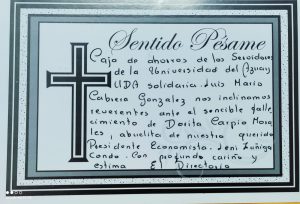 Sentido Pésame
Caja de ahorros de los Servidores
de la Universidad del Azuay
UDA solidaria Luis Mario
Cabrera Gonzalez nos inclinamos
reverentes ante el sensible falle
cimiento de Dorita Carpio Mora
les, abuelita de nuestro querido
Presidente Economista. Jeni Zuñiga
Condo. Con profundo cariño y
estima El Directorio